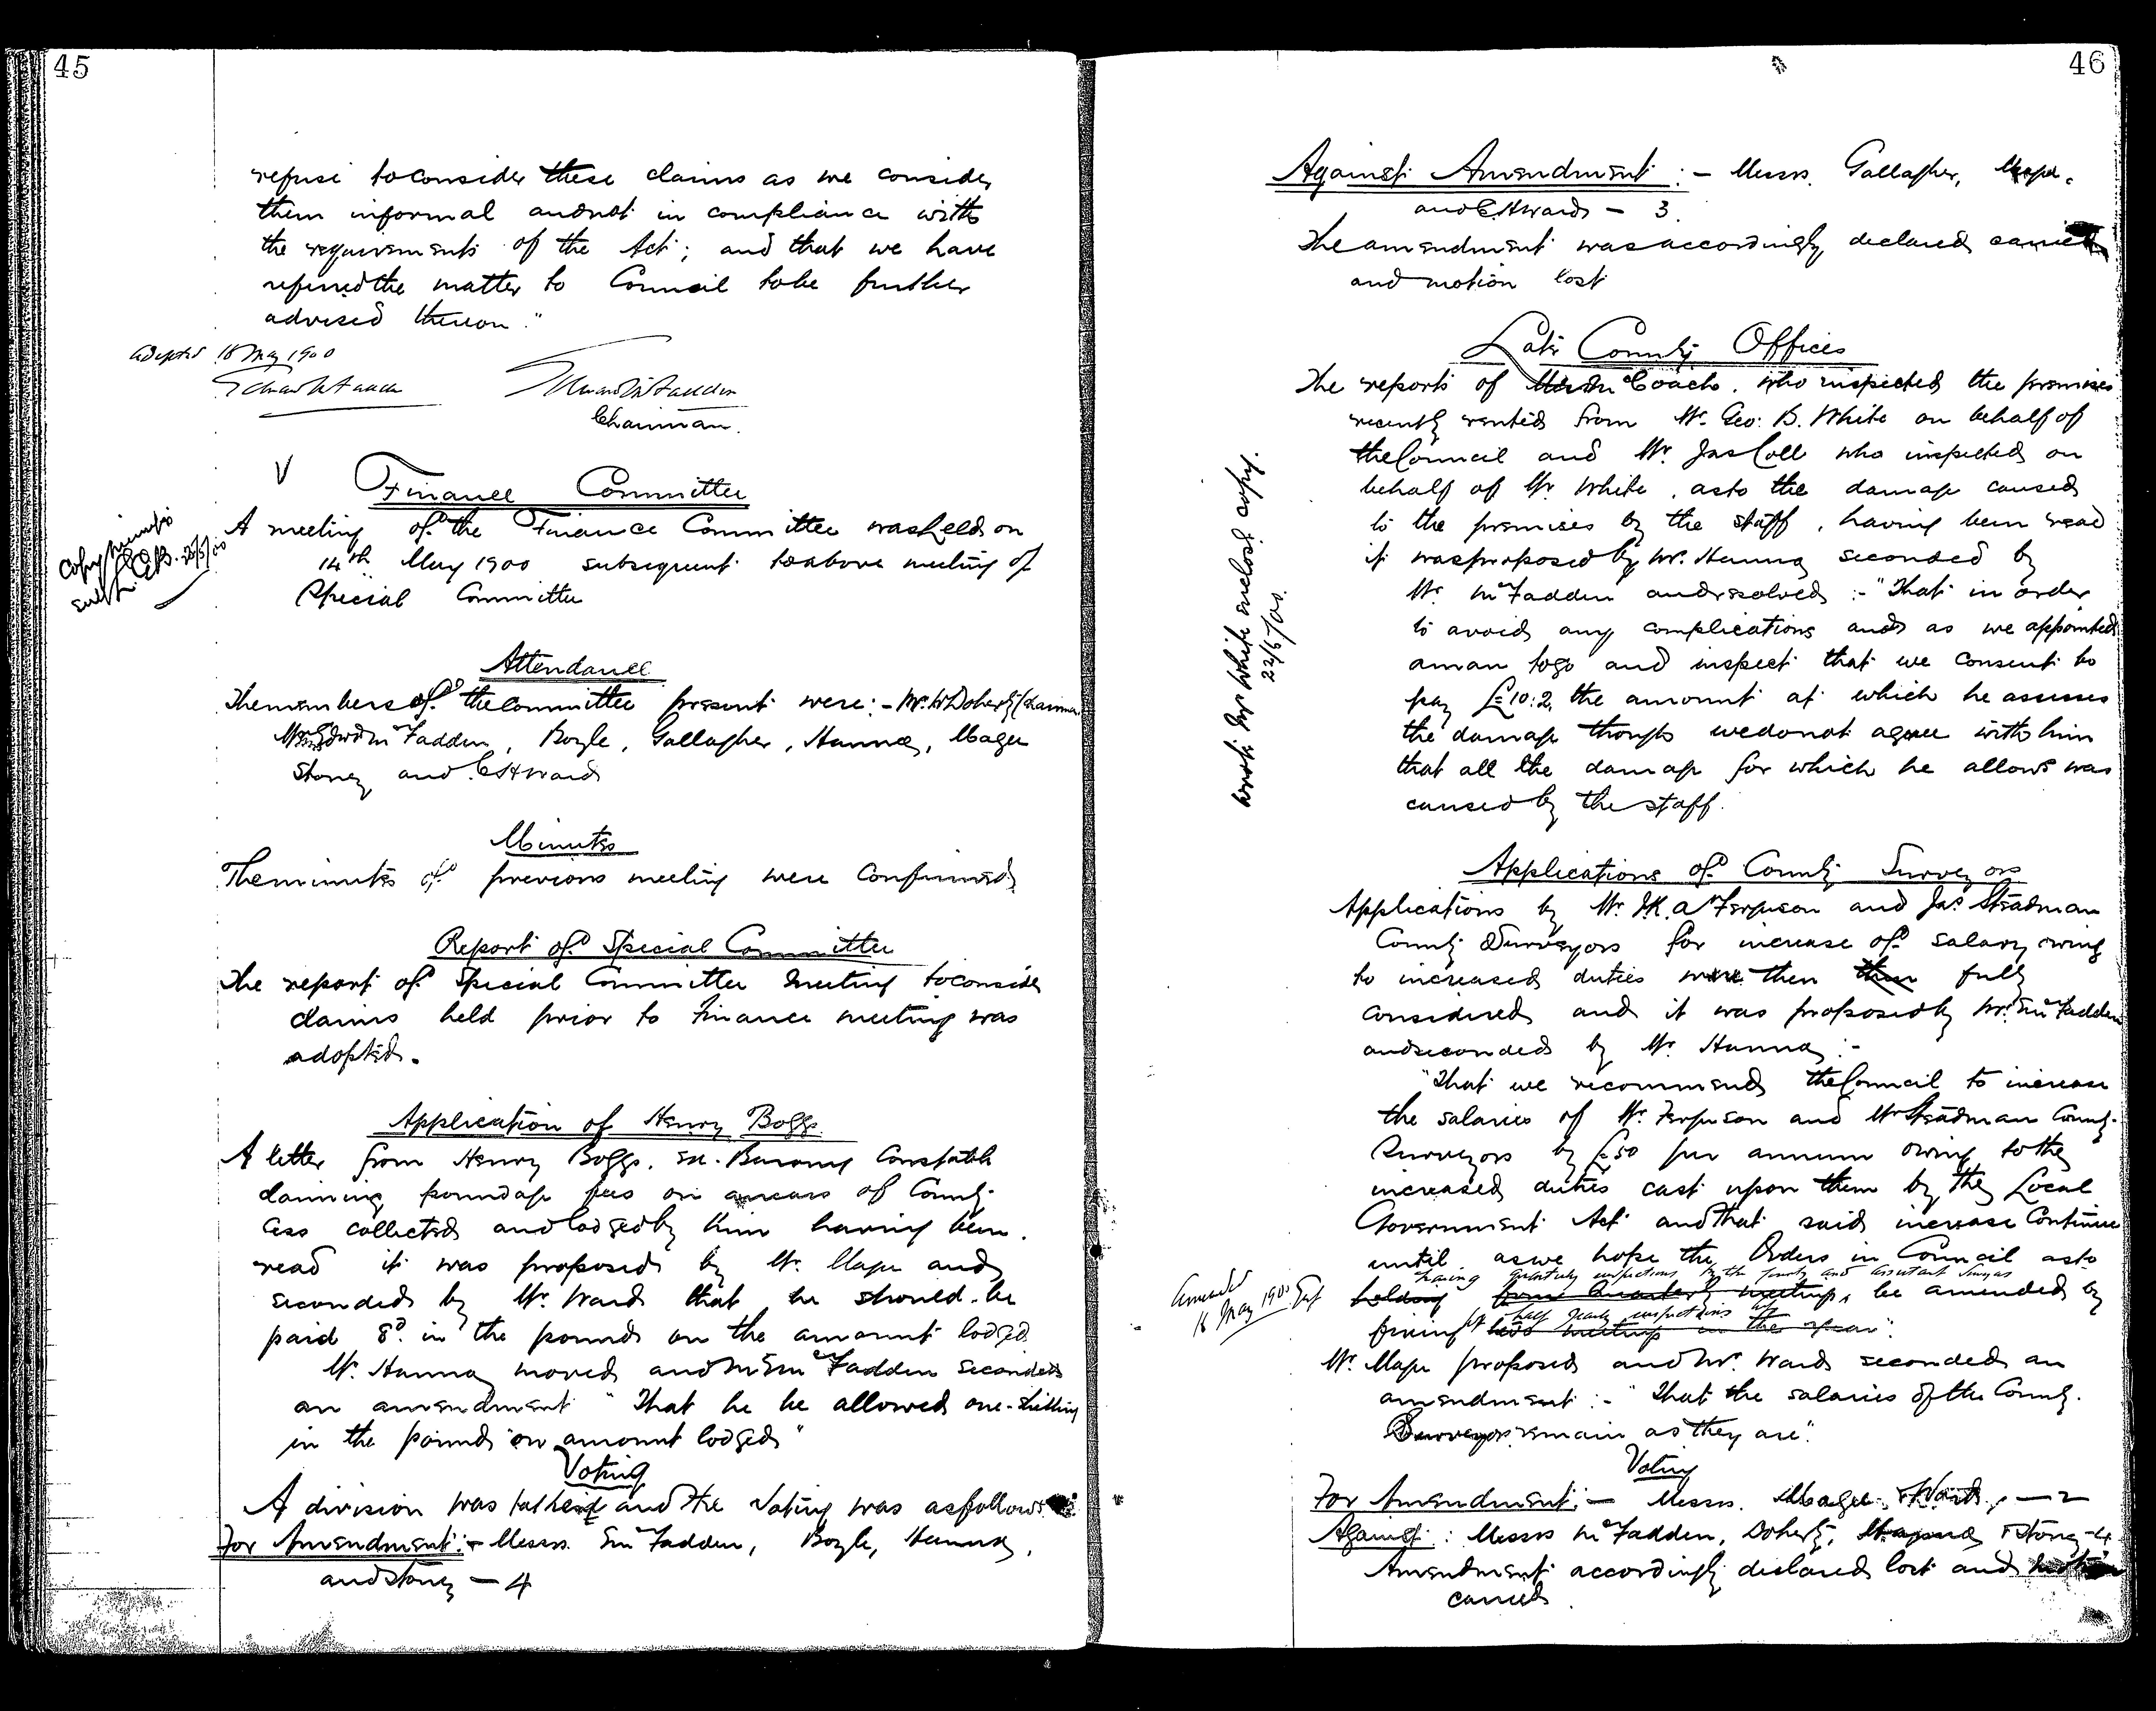 45
refuse to consider these claims as we consider
them informal and not in compliance with
the requirements of the Act; and that we have
referred the matter to Council to be further
advised thereon."
Adopted 18 May 1900
Edward McFadden
Edward McFadden
Chairman.
V
Finance Committee
A meeting of the Finance Committee was held on
14th May 1900 subsequent to above meeting of
Special Committee
Copy minutes
25/5/00
Attendance
The members of the Committee present were:- Mr. W Doherty (Chairman
Fadden, Boyle, Gallagher, Hanna, Magee
Storey and C H Ward
Minutes
The minutes of previous meeting were confirmed
Report of Special Committee
The report of Special Committee meeting to consider
claims held prior to Finance meeting was
adopted.
Application of Henry Boggs.
A letter from Henry Boggs. ex. Barony Constable
claiming poundage fees on arrears of County
Cess collected and lodged by him having been
read it was proposed by Mr. Magee and
seconded by Mr. Ward that he should be
paid 8d. in the pound on the amount lodged
Mr. Hanna moved and Mr E McFadden seconded
an amendment "That he be allowed one-shilling
in the pound on amount lodged"
Voting
A division was taken and the voting was as follows
For Amendment:- Messrs. E McFadden, Boyle, Hanna,
and Storey - 4
46
Against Amendment:- Messrs. Gallagher, Magee.
and C. H Ward - 3.
The amendment was accordingly declared carried
and motion lost
Late County Offices
The reports of McCoach. who inspected the premises
recently rented from Mr. Geo: B. White on behalf of
the Council and Mr. Jas Coll who inspected on
behalf of Mr White, as to the damage caused
to the premises by the staff, having been read
it was proposed by Mr. Hanna seconded by
Mr. McFadden and resolved:- "That in order
to avoid any complications and as we appointed
a man to go and inspect that we consent to
pay £10:2, the amount at which he assesses
the damage though we do not agree with him
that all the damage for which he allows was
caused by the staff.
Wrote Mr White enclosg. copy.
22/5/00.
Applications of County Surveyors
Applications by Mr. J.K. a Ferguson and Jas Steadman
County Surveyors for increase of salary owing
to increased duties were then then fully
considered and it was proposed by Mr. E McFadden
and seconded by Mr. Hanna:-
"That we recommend the Council to increase
the salaries of Mr. Ferguson and Mr Steadman County
Surveyors by £50 per annum owing to the
increased duties cast upon them by the Local
Government Act and that said increase Continue
until as we hope the Orders in Council as to
having quarterly inspections by the County and assistant Surveyors
holding four quarterly meetings, be amended by
half yearly inspections
fixing two meetings in the year".
Amended
18 May 1900
Mr. Magee proposed and Mr. Ward seconded an
amendment:- "That the salaries of the County
Surveyors remain as they are".
Voting
For Amendment:- Messrs. Magee, Ward, - 2
Against: Messrs McFadden, Doherty, Hanna & Storey - 4
Amendment accordingly declared lost and motion
carried.